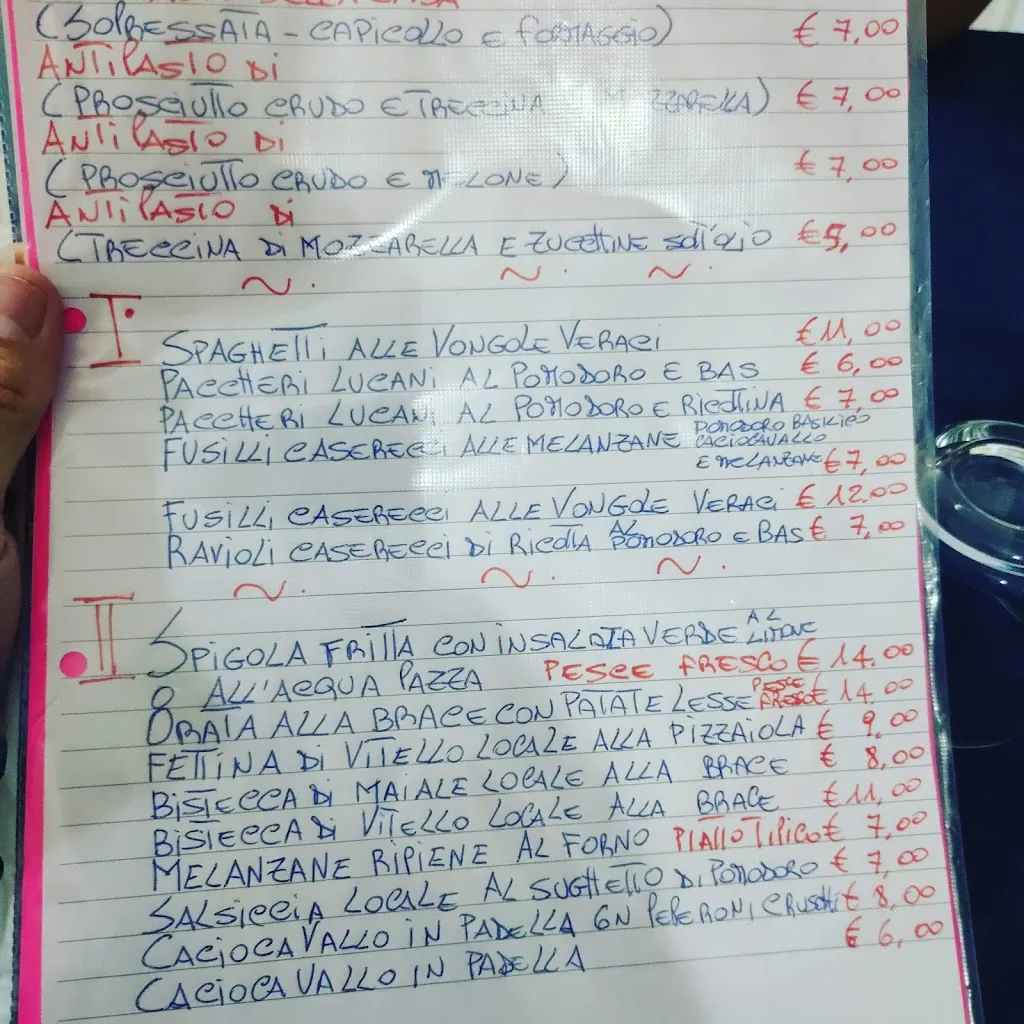 (SOPRESSATA - CAPICOLLO E FORMAGGIO) € 7,00
ANTIPASTO DI
(PROSCIUTTO CRUDO E TRECCINA MOZZARELLA) € 7,00
ANTIPASTO DI
(PROSCIUTTO CRUDO E MELONE) € 7,00
ANTIPASTO DI
(TRECCINA DI MOZZARELLA E ZUCCHINE € 5,00
I°
SPAGHETTI ALLE VONGOLE VERACI € 11,00
PACCHERI LUCANI AL POMODORO E BAS € 6,00
PACCHERI LUCANI AL POMODORO E RICOTTINA € 7,00
FUSILLI CASERECCI ALLE MELANZANE POMODORO BASILICO
CACIOCAVALLO
E MELANZANE € 7,00
FUSILLI CASERECCI ALLE VONGOLE VERACI € 12.00
RAVIOLI CASERECCI DI RICOTTA AL POMODORO E BAS € 7,00
II
SPIGOLA FRITTA CON INSALATA VERDE AL LIMONE
O ALL'ACQUA PAZZA PESCE FRESCO € 14.00
ORATA ALLA BRACE CON PATATE LESSE PESCE FRESCO € 14.00
FETTINA DI VITELLO LOCALE ALLA PIZZAIOLA € 9,00
BISTECCA DI MAIALE LOCALE ALLA BRACE € 8,00
BISTECCA DI VITELLO LOCALE ALLA BRACE € 11,00
MELANZANE RIPIENE AL FORNO PIATTO TIPICO € 7,00
SALSICCIA LOCALE AL SUGHETTO DI POMODORO € 7,00
CACIOCAVALLO IN PADELLA CON PEPERONI CRUSCHI € 8,00
CACIOCAVALLO IN PADELLA € 6,00